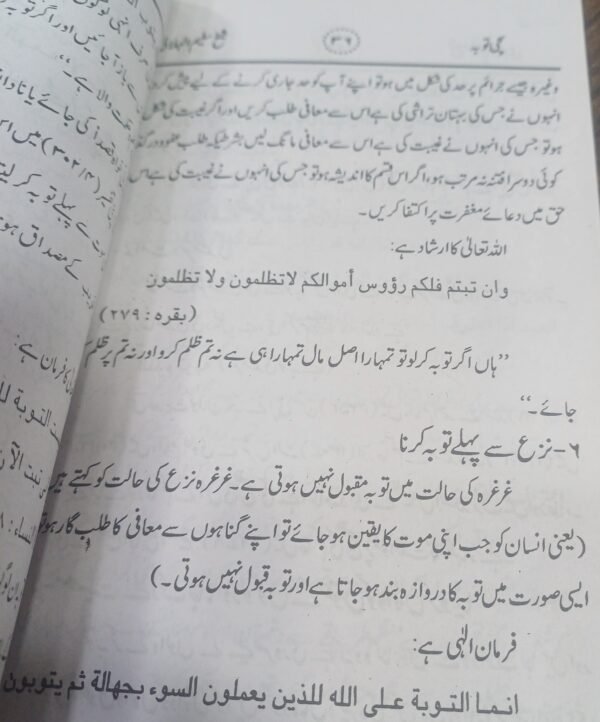 سچی توبہ
۳۶
شیخ سلیم الہلالی
وغیرہ جیسے جرائم پر حد کی شکل میں ہو تو اپنے آپ کو حد جاری کرنے کے لیے پیش کر
انہوں نے جس کی بہتان تراشی کی ہے اس سے معافی طلب کریں اور اگر غیبت کی شکل
ہو تو جس کی انہوں نے غیبت کی ہے اس سے معافی مانگ لیں بشرطیکہ طلب عفو و درگذ
کوئی دوسرا فتنہ نہ مرتب ہو، اگر اس قسم کا اندیشہ ہو تو جس کی انہوں نے غیبت کی ہے اس
حق میں دعائے مغفرت پر اکتفا کریں۔
اللہ تعالیٰ کا ارشاد ہے:
وان تبتم فلكم رؤوس أموالكم لاتظلمون ولا تظلمون
(بقرہ: ۲۷۹)
”ہاں اگر توبہ کر لو تو تمہارا اصل مال تمہارا ہی ہے نہ تم ظلم کرو اور نہ تم پر ظلم کیا
جائے۔“
۶- نزع سے پہلے توبہ کرنا
غرغرہ کی حالت میں توبہ مقبول نہیں ہوتی ہے۔ غرغرہ نزع کی حالت کو کہتے ہیں
(یعنی انسان کو جب اپنی موت کا یقین ہو جائے تو اپنے گناہوں سے معافی کا طلب گار ہو تو
ایسی صورت میں توبہ کا دروازہ بند ہو جاتا ہے اور توبہ قبول نہیں ہوتی۔)
فرمان الٰہی ہے:
انما التوبة على الله للذين يعملون السوء بجهالة ثم يتوبون